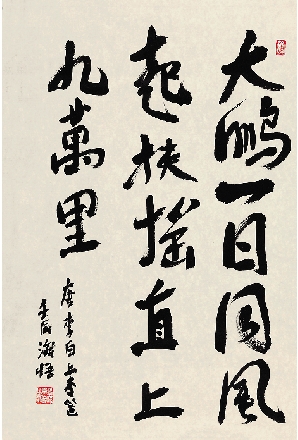 大鹏一日同风
起扶摇直上
九萬里
唐李白上李邕
壬辰